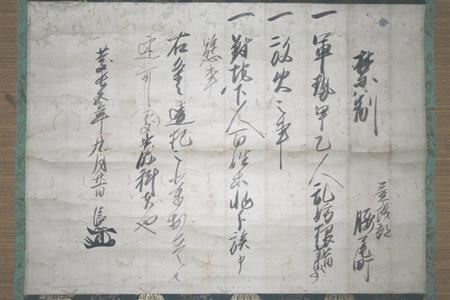 禁制
町
一軍勢甲乙人乱妨狼藉事
一放火之事
一対地下人百姓等非分族申
懸事
右条々違犯之輩於在之者
速可処厳科者也
慶長五年九月廿日